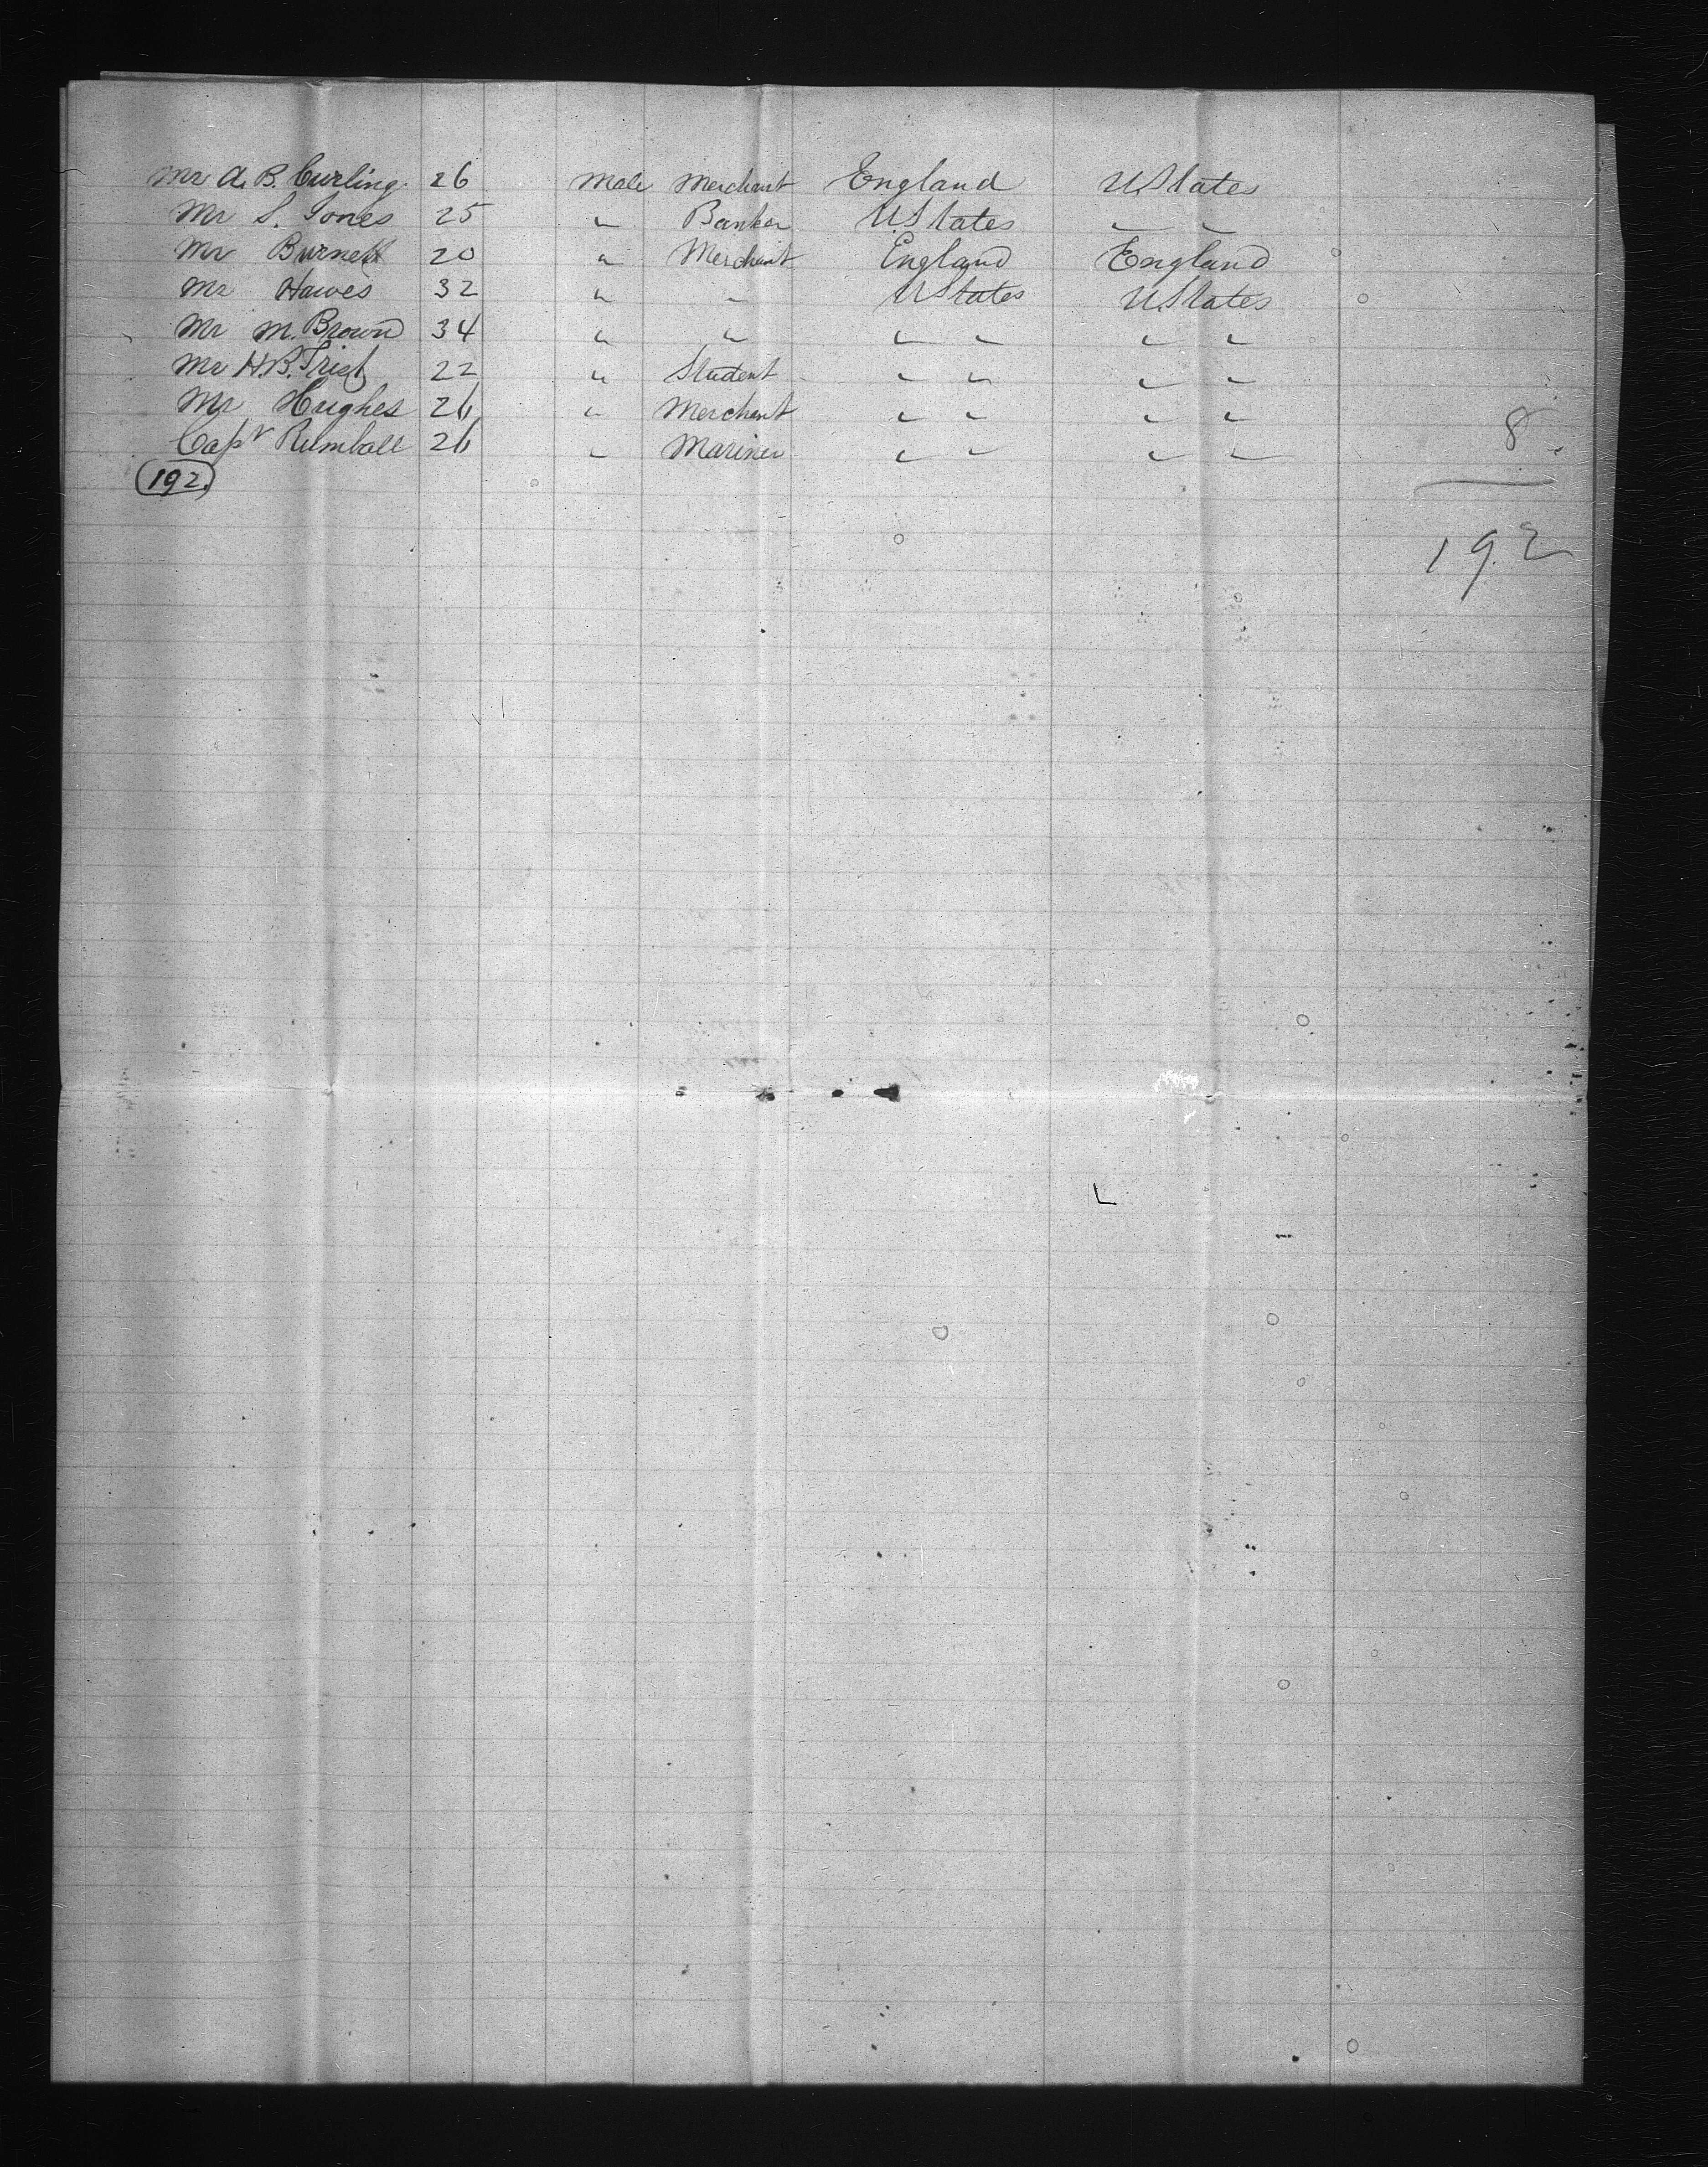 Mr A. B. Curling 26 Male Merchant England UStates
Mr S. Jones 25 " Banker UStates " "
Mr Burnett 20 " Merchant England England
Mr Hawes 32 " " UStates UStates
Mr M. Brown 34 " " " " " "
Mr H.B. Trist 22 " Student " " " "
Mr Hughes 26 " Merchant " " " " 8
Capt Rumball 26 " Mariner " " " "
192.
192